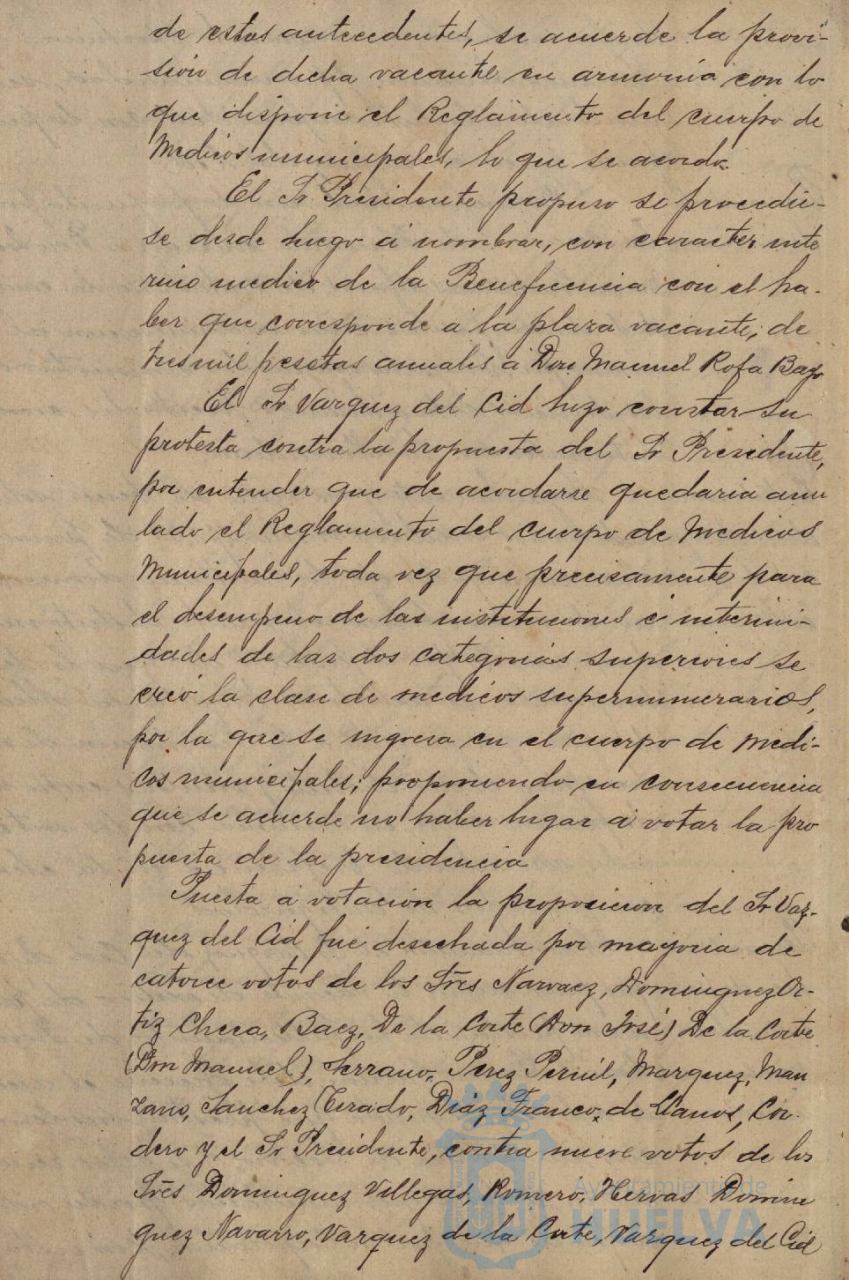 de estos antecedentes, se acuerde la provi-
sión de dicha vacante en armonía con lo
que dispone el Reglamento del cuerpo de
Medicos municipales, lo que se acordó.
El Sr Presidente propuso se procedie-
se desde luego á nombrar, con caracter inte
rino medico de la Beneficencia con el ha-
ber que corresponde á la plaza vacante, de
tres mil pesetas anuales á Don Manuel Rofa Bayo
El Sr Vazquez del Cid hizo constar su
protesta contra la propuesta del Sr Presidente,
por entender que de acordarse quedaria anu
lado el Reglamento del cuerpo de Medicos
Municipales, toda vez que precisamente para
el desempeno de las sustituciones é interini-
dades de las dos categorias superiores se
creó la clase de medicos supernumerarios,
por la que se ingresa en el cuerpo de medi-
cos municipales; proponiendo en consecuencia
que se acuerde no haber lugar á votar la pro
puesta de la presidencia
Puesta á votación la proposicion del Sr Vaz-
quez del Cid fué desechada por mayoria de
catorce votos de los Sres Narvaez, Dominguez Or-
tiz Checa, Baez, De la Corte (Don José) De la Corte
(Don Manuel), Serrano, Perez Pernil, Marquez, Man
zano, Sanchez Terado, Diaz Franco, de Llanos, Cor-
dero y el Sr Presidente, contra nueve votos de los
Sres Dominguez Villegas, Romero, Hervas Domin
guez Navarro, Vazquez de la Corte, Vazquez del Cid
Ayuntamiento de
HUELVA